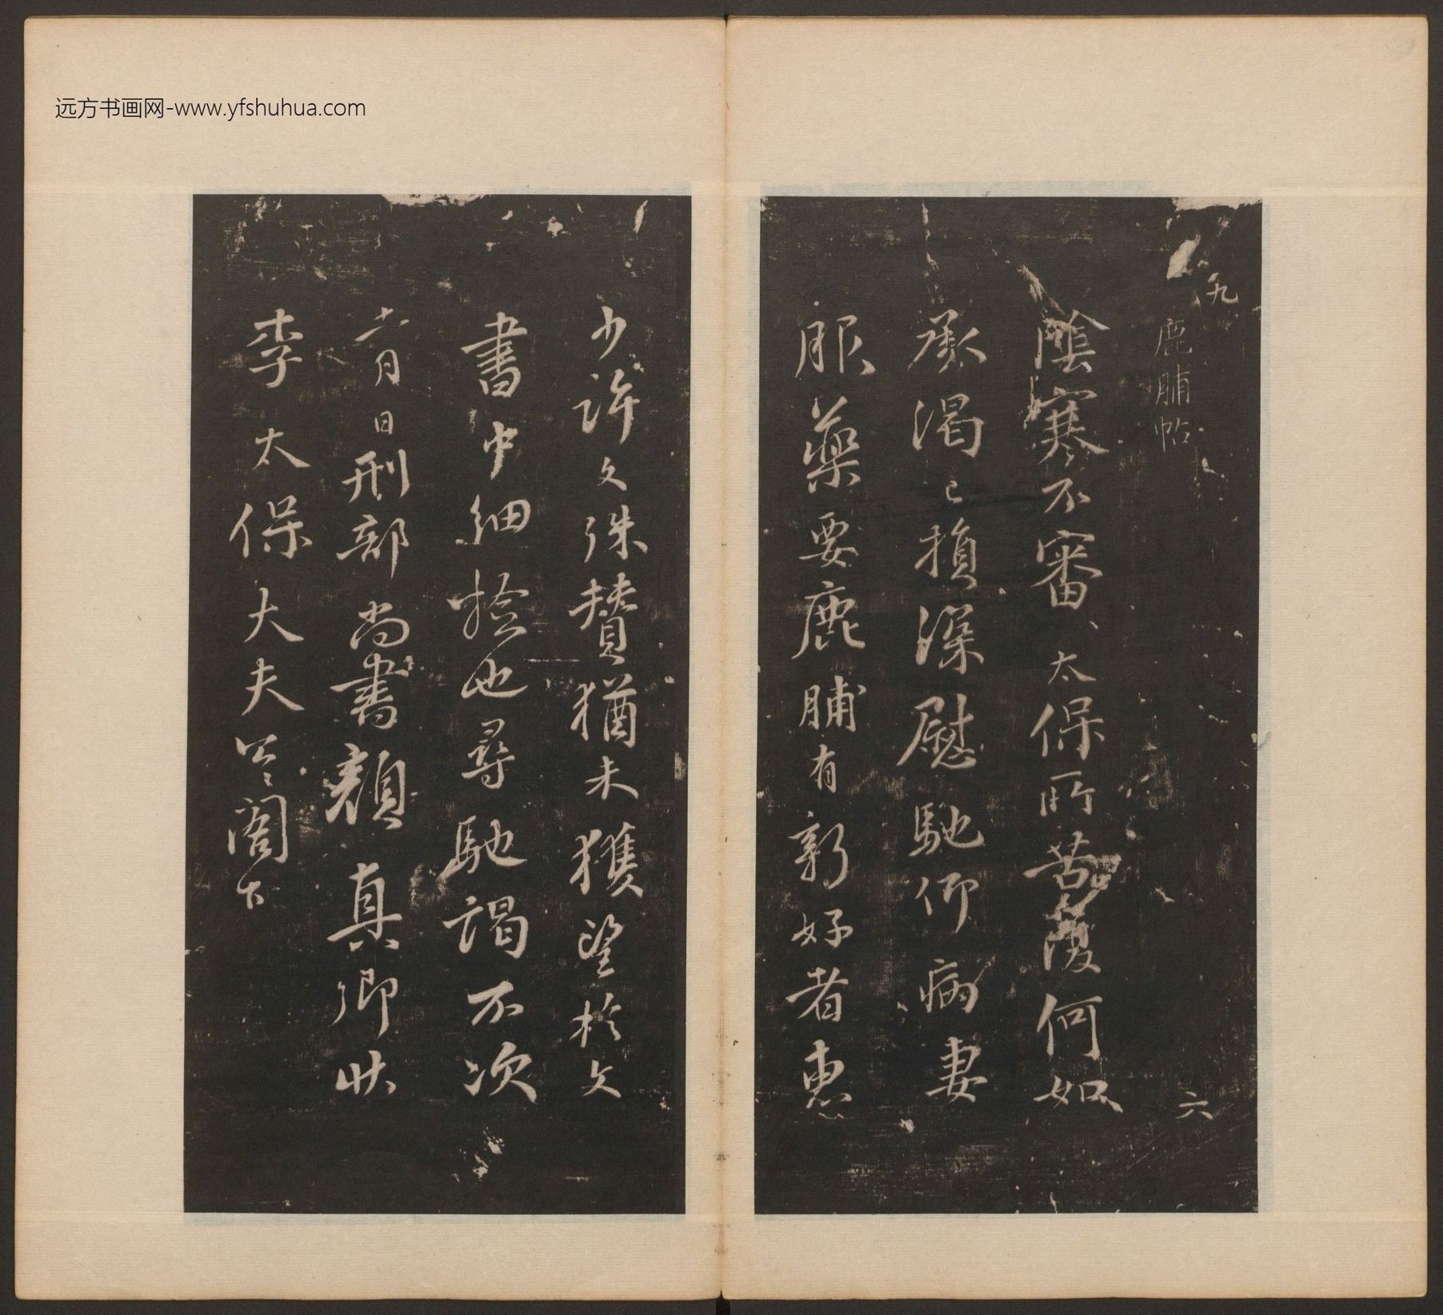 远方书画网-www.yfshuhua.com
九
鹿脯帖
六
陰寒不審、太保所苦復何如
承渴已損深慰馳仰病妻
服藥要鹿脯有新好者惠
少許文殊賛猶未獲望於文
書中細撿也尋馳謁不次
六月日刑部尚書顏真卿狀
李太保大夫公閤下